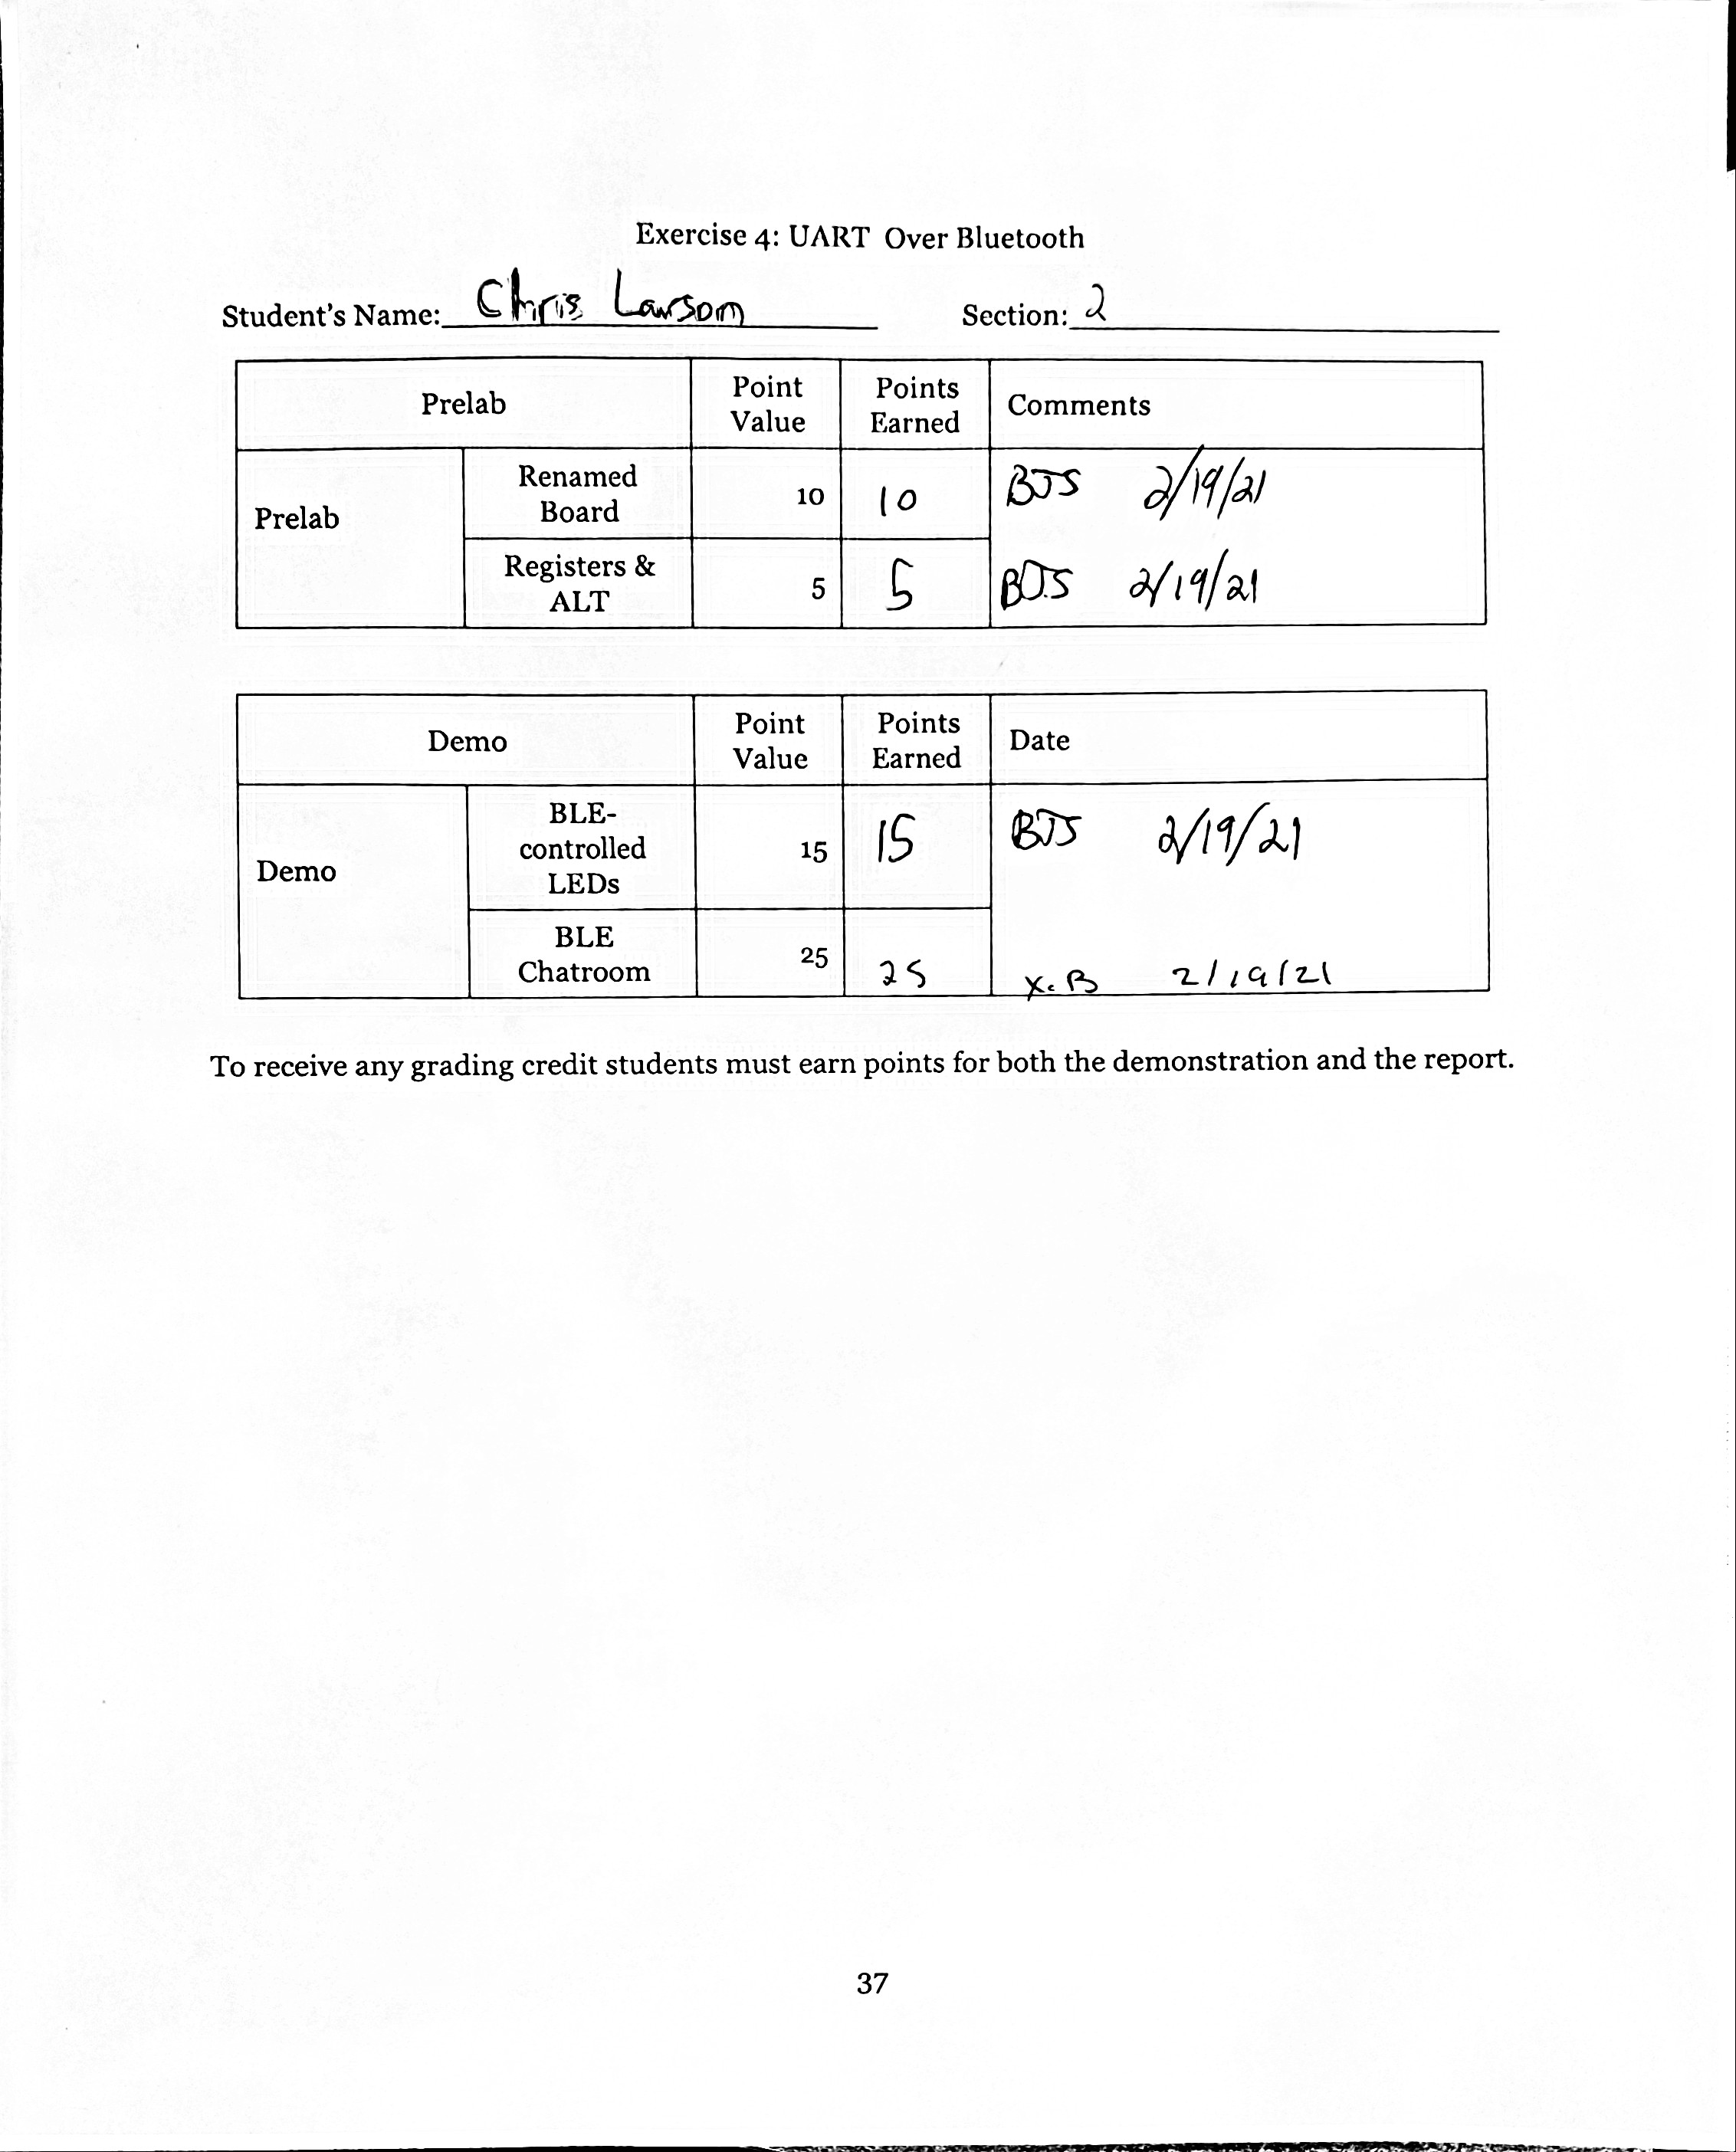 Exercise 4: UART Over Bluetooth
Student's Name: Chris Larson Section: 2
Prelab Point Value Points Earned Comments
Prelab Renamed Board 10 10 BJS 2/19/21
Registers & ALT 5 5 BJS 2/19/21
Demo Point Value Points Earned Date
Demo BLE-controlled LEDs 15 15 BJS 2/19/21
BLE Chatroom 25 25 X.B 2/19/21
To receive any grading credit students must earn points for both the demonstration and the report.
37